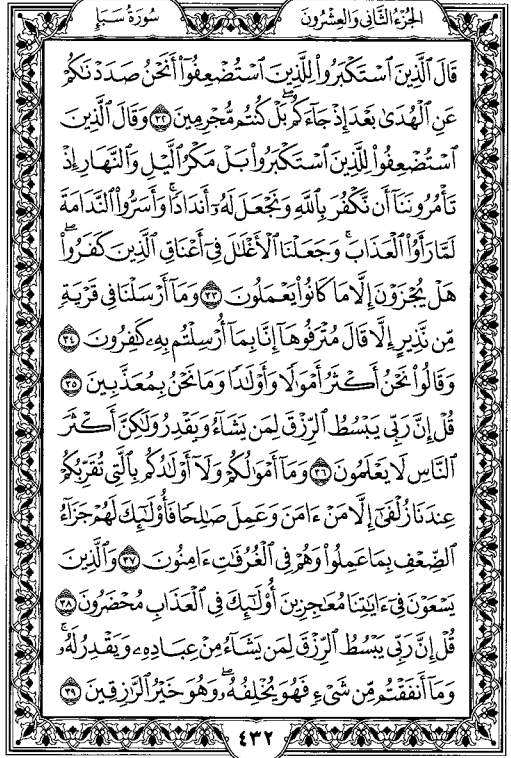 الجُزْءُ الثَّانِي وَالعِشْرُونَ
سُورَةُ سَبَإٍ
قَالَ ٱلَّذِينَ ٱسْتَكْبَرُواْ لِلَّذِينَ ٱسْتُضْعِفُوٓاْ أَنَحْنُ صَدَدْنَٰكُمْ
عَنِ ٱلْهُدَىٰ بَعْدَ إِذْ جَآءَكُم ۖ بَلْ كُنتُم مُّجْرِمِينَ ٣٢ وَقَالَ ٱلَّذِينَ
ٱسْتُضْعِفُواْ لِلَّذِينَ ٱسْتَكْبَرُواْ بَلْ مَكْرُ ٱلَّيْلِ وَٱلنَّهَارِ إِذْ
تَأْمُرُونَنَآ أَن نَّكْفُرَ بِٱللَّهِ وَنَجْعَلَ لَهُۥٓ أَندَادًا ۚ وَأَسَرُّواْ ٱلنَّدَامَةَ
لَمَّا رَأَوُاْ ٱلْعَذَابَ ۚ وَجَعَلْنَا ٱلْأَغْلَٰلَ فِىٓ أَعْنَاقِ ٱلَّذِينَ كَفَرُواْ ۖ
هَلْ يُجْزَوْنَ إِلَّا مَا كَانُواْ يَعْمَلُونَ ٣٣ وَمَآ أَرْسَلْنَا فِى قَرْيَةٍ
مِّن نَّذِيرٍ إِلَّا قَالَ مُتْرَفُوهَآ إِنَّا بِمَآ أُرْسِلْتُم بِهِۦ كَٰفِرُونَ ٣٤
وَقَالُواْ نَحْنُ أَكْثَرُ أَمْوَٰلًا وَأَوْلَٰدًا وَمَا نَحْنُ بِمُعَذَّبِينَ ٣٥
قُلْ إِنَّ رَبِّى يَبْسُطُ ٱلرِّزْقَ لِمَن يَشَآءُ وَيَقْدِرُ وَلَٰكِنَّ أَكْثَرَ
ٱلنَّاسِ لَا يَعْلَمُونَ ٣٦ وَمَآ أَمْوَٰلُكُمْ وَلَآ أَوْلَٰدُكُم بِٱلَّتِى تُقَرِّبُكُمْ
عِندَنَا زُلْفَىٰٓ إِلَّا مَنْ ءَامَنَ وَعَمِلَ صَٰلِحًا فَأُوْلَٰٓئِكَ لَهُمْ جَزَآءُ
ٱلضِّعْفِ بِمَا عَمِلُواْ وَهُمْ فِى ٱلْغُرُفَٰتِ ءَامِنُونَ ٣٧ وَٱلَّذِينَ
يَسْعَوْنَ فِىٓ ءَايَٰتِنَا مُعَٰجِزِينَ أُوْلَٰٓئِكَ فِى ٱلْعَذَابِ مُحْضَرُونَ ٣٨
قُلْ إِنَّ رَبِّى يَبْسُطُ ٱلرِّزْقَ لِمَن يَشَآءُ مِنْ عِبَادِهِۦ وَيَقْدِرُ لَهُۥ ۚ
وَمَآ أَنفَقْتُم مِّن شَىْءٍ فَهُوَ يُخْلِفُهُۥ ۖ وَهُوَ خَيْرُ ٱلرَّٰزِقِينَ ٣٩
٤٣٢